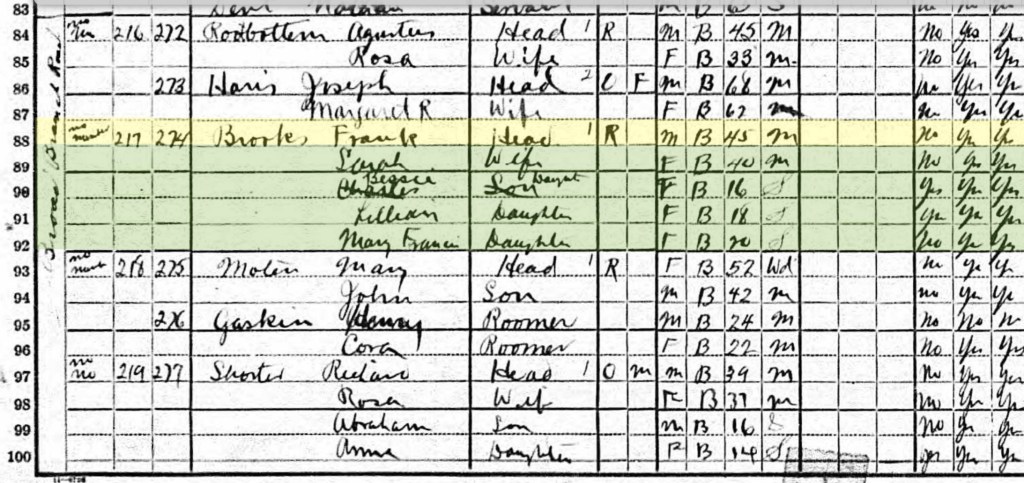 83
84 no 216 272 Rodbottem Agustus Head 1 R M B 45 M No Yes Yes
85 Rosa Wife F B 33 M No Yes Yes
86 273 Haris Joseph Head 2 O F M B 68 M no Yes Yes
87 Margaret R Wife F B 62 M no Yes Yes
88 no 217 274 Brooks Frank Head 1 R M B 45 M No Yes Yes
89 Sarah Wife F B 40 M No Yes Yes
90 Charles Bessie Son Daught F B 16 S Yes Yes Yes
91 Lillian Daughter F B 18 S Yes Yes Yes
92 Mary Francis Daughter F B 20 S No Yes Yes
93 no 218 275 Moten Mary Head 1 R F B 52 Wd no Yes Yes
94 John Son M B 42 M no Yes Yes
95 276 Gaskin Henry Roomer M B 24 M No No No
96 Cora Roomer F B 22 M No Yes Yes
97 no no 219 277 Shorter Richard Head 1 O M M B 39 M No Yes Yes
98 Rosa Wife F B 37 M No Yes Yes
99 Abraham Son M B 16 S No Yes Yes
100 Anna Daughter F B 14 S Yes Yes Yes